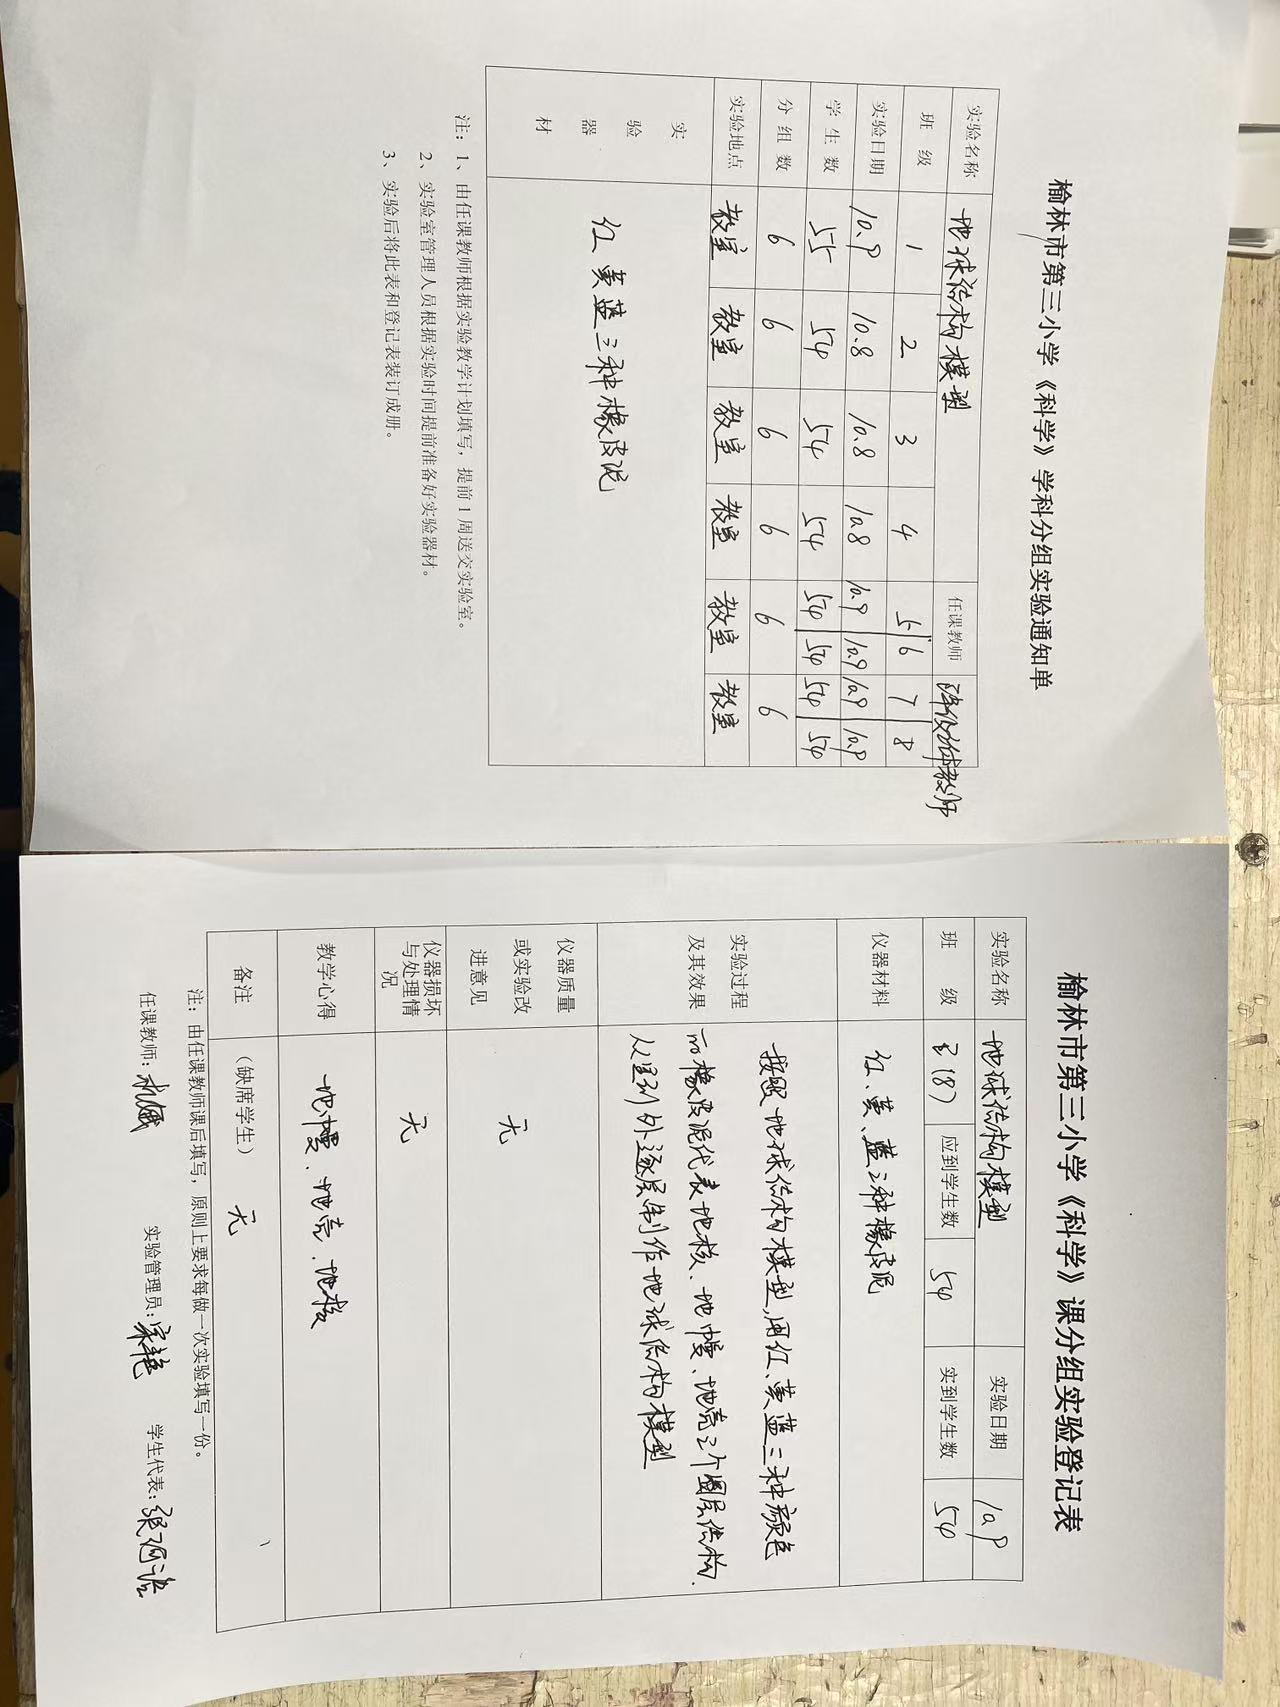 榆林市第三小学《科学》学科分组实验通知单
实验名称 地球结构模型 任课教师
班 级 1 2 3 4 5 6 7 8
实验日期 10.9 10.8 10.8 10.8 10.9 10.9 10.9 10.9
学 生 数 55 54 54 54 54 54 54 54
分 组 数 6 6 6 6 6 6
实验地点 教室 教室 教室 教室 教室 教室
实验器材 红黄蓝三种橡皮泥
注：1、由任课教师根据实验教学计划填写，提前1周送交实验室。
2、实验室管理人员根据实验时间提前准备好实验器材。
3、实验后将此表和登记表装订成册。
榆林市第三小学《科学》课分组实验登记表
实验名称 地球结构模型 实验日期 10.9
班 级 (8) 应到学生数 54 实到学生数 54
仪器材料 红、黄、蓝三种橡皮泥
实验过程及其效果 按照地球结构模型,用红、黄蓝三种颜色
的橡皮泥代表地核、地幔、地壳三个圈层结构.
从里到外逐层制作地球结构模型
仪器质量或实验改进意见 无
仪器损坏与处理情况 无
教学心得 地幔、地壳、地核
备注 （缺席学生） 无
注：由任课教师课后填写，原则上要求每做一次实验填写一份。
任课教师： 实验管理员：宋艳 学生代表：